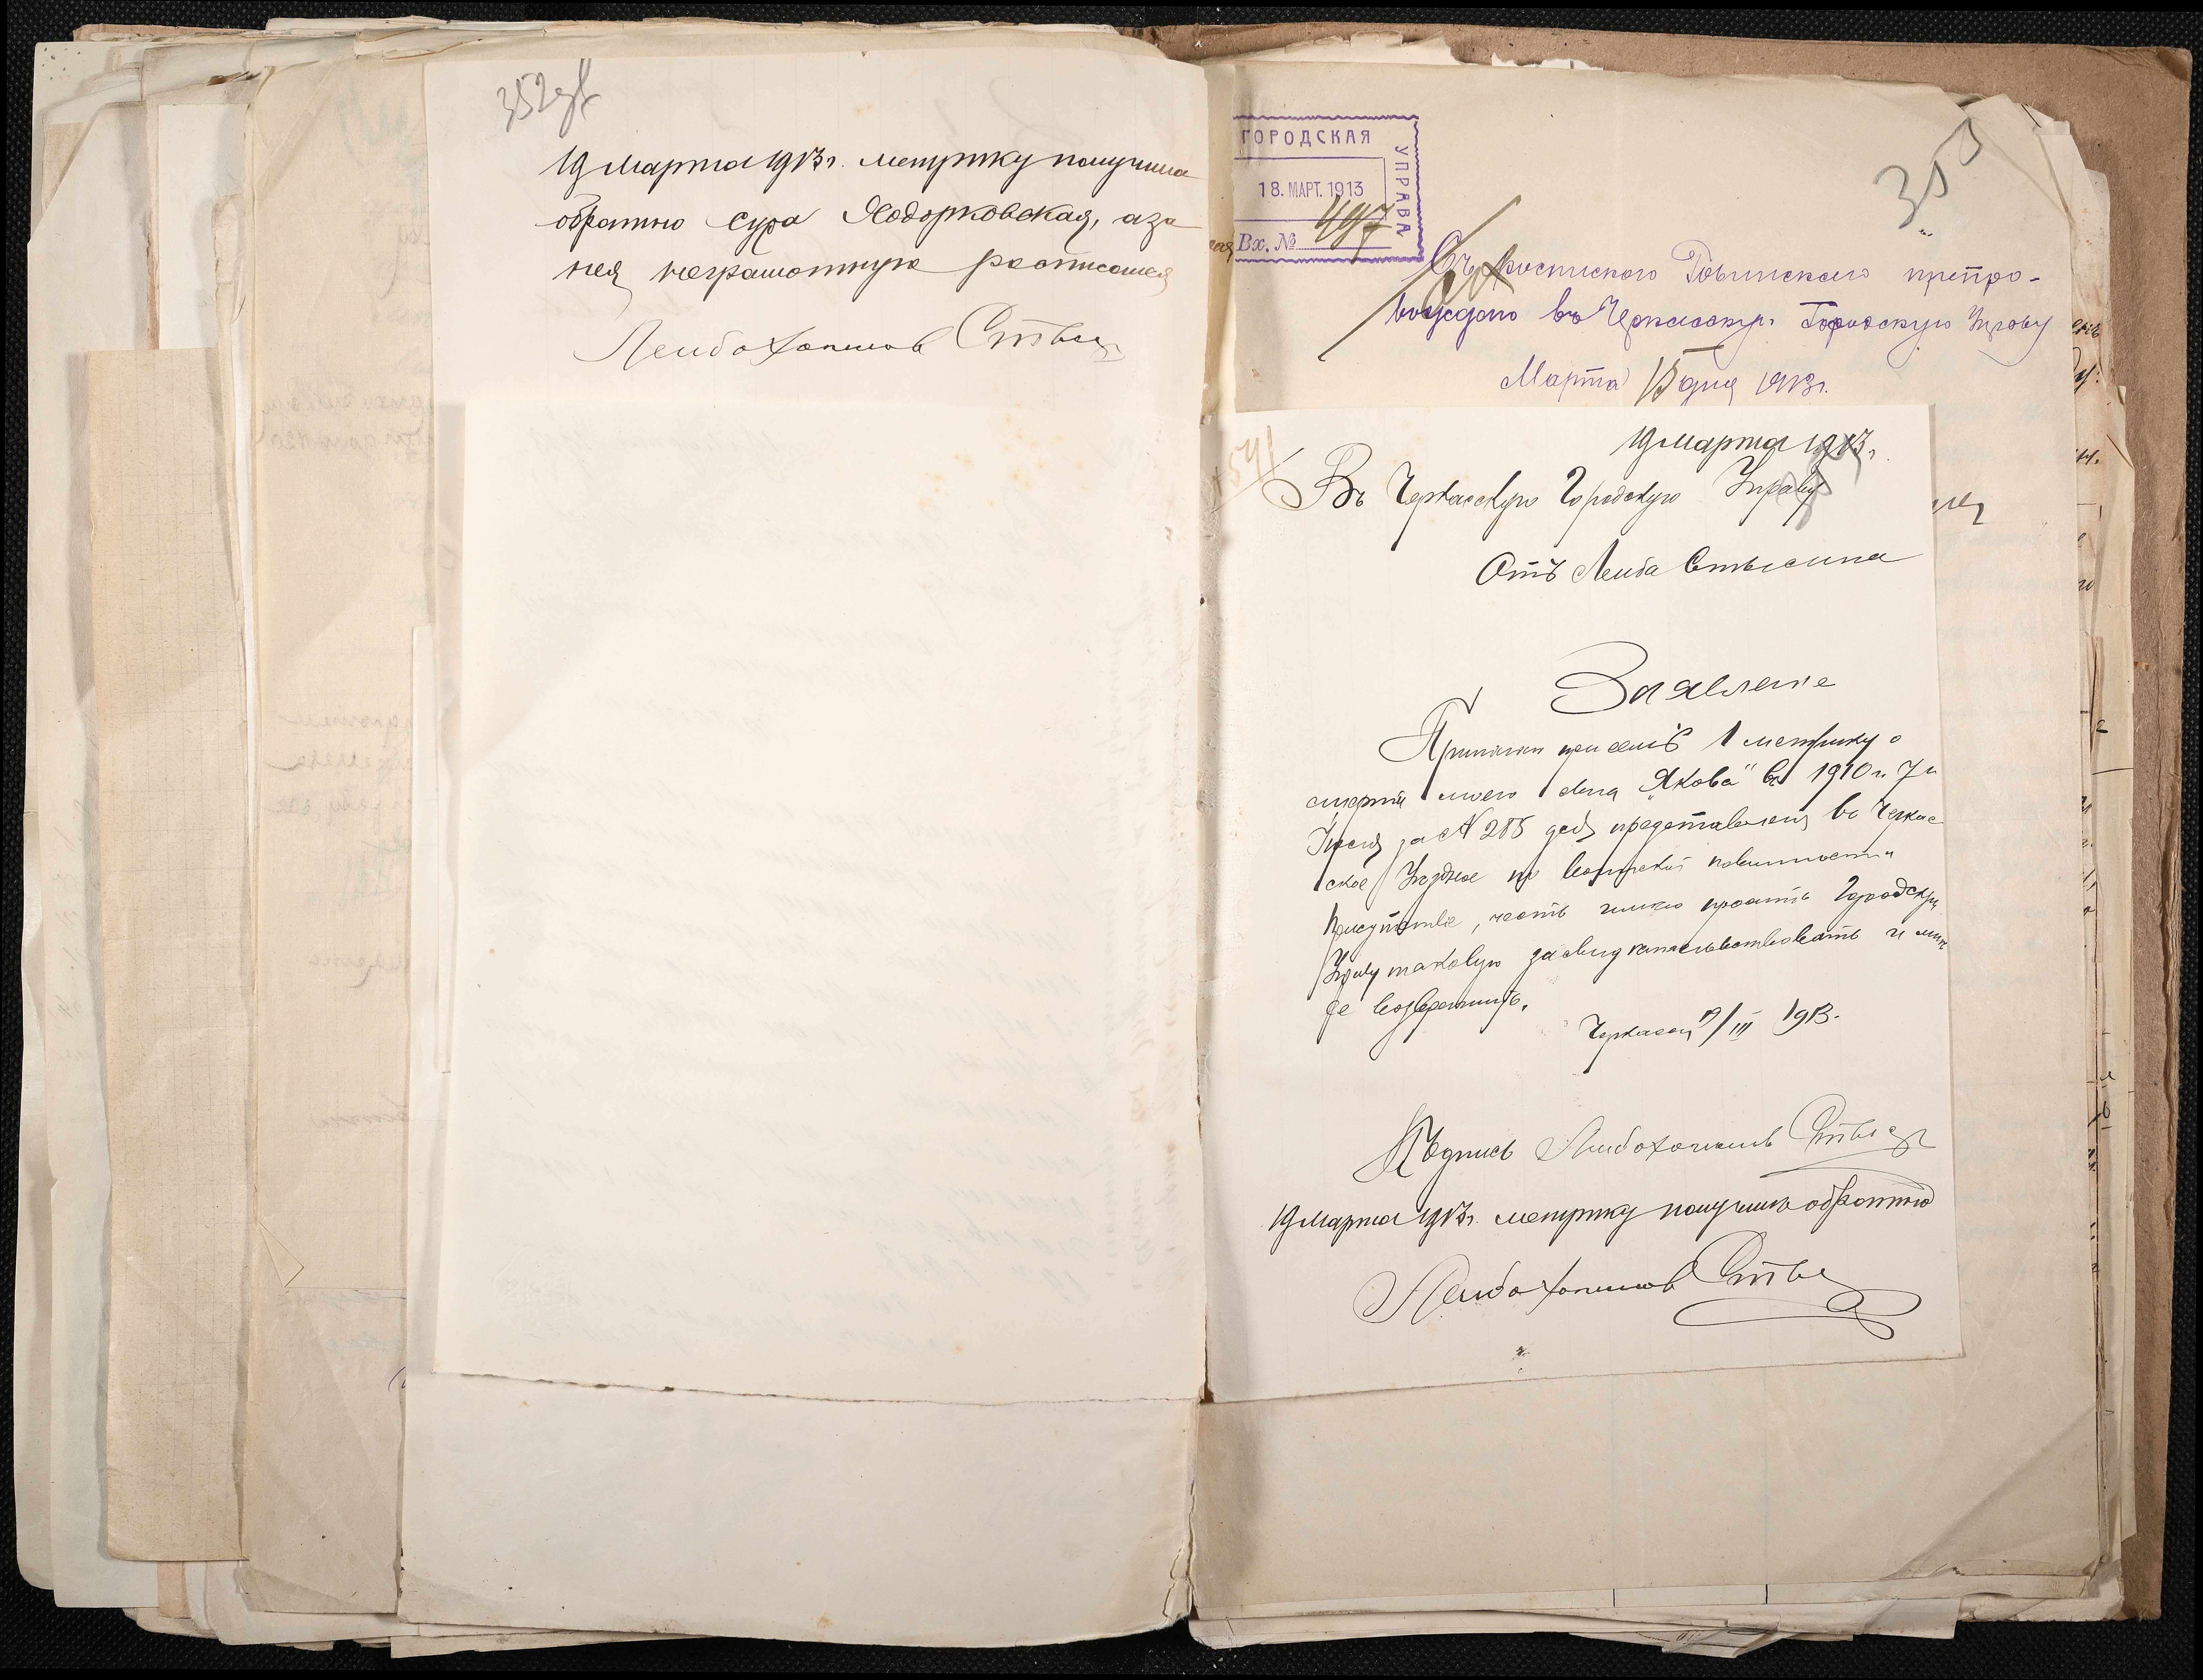 352об
19 Марта 1913 г. метрику получила
обратно Сура Ходорковская, а за
нея неграмотную росписался
Лейбо Хаимов
ГОРОДСКАЯ
УПРАВА
18. МАРТ. 1913
Вх. № 497
353
Съ роспискою препро-
вождено въ Черкасскую Городскую Управу
Марта 15 дня 1913 г.
19 Марта 1913 г.
Въ Черкасскую Городскую Управу
Отъ Лейба
Заявление
при семъ 1 метрику о
смерти моего сына „Якова" въ 1910 г. 7
за № 285 для представления въ Черкас
ское Уездное по воинской повинности
Присутствие, честь имею просить Городскую
Управу таковую засвидетельствовать и мне
ее возвратить.
Черкассы 19/III 1913.
Подпись Лейбо Хаимовъ
19 Марта 1913 г. метрику получилъ обратно
Лейбо Хаимов